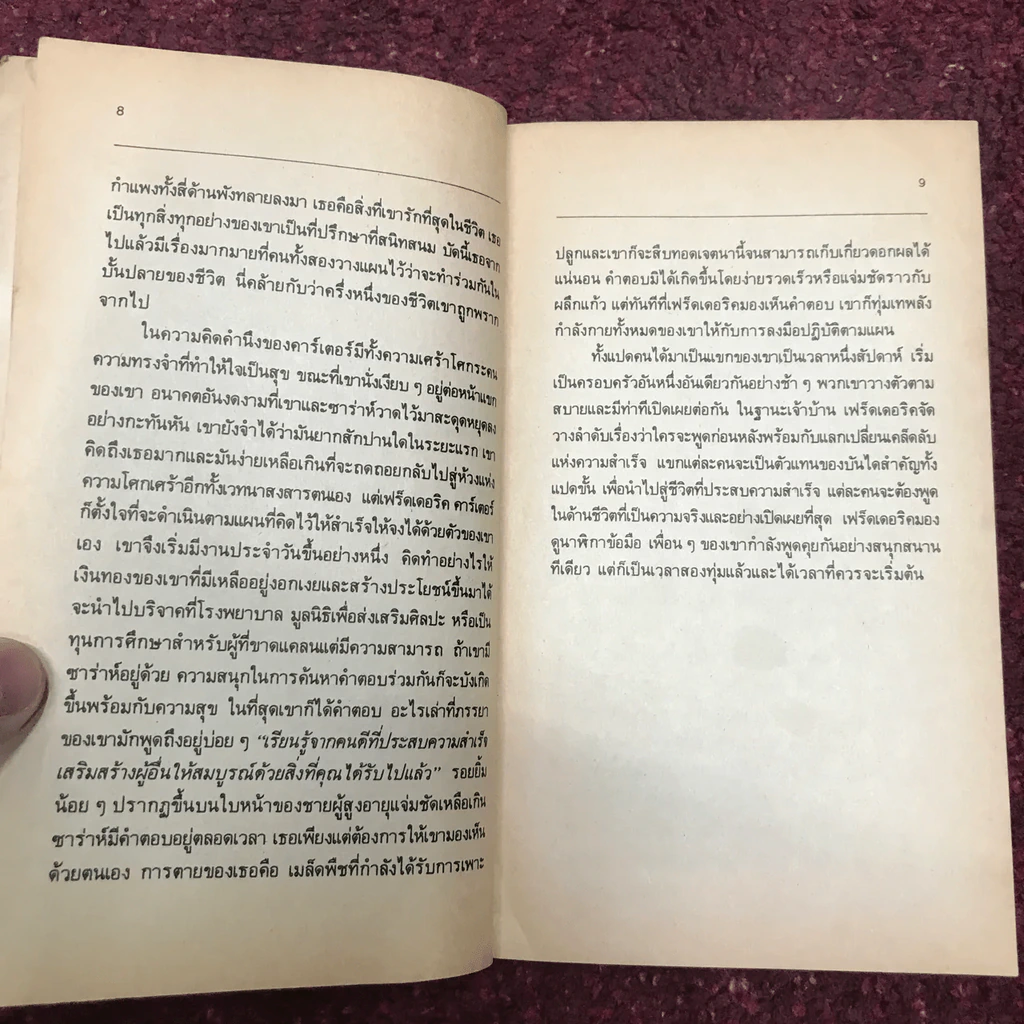 8
กำแพงทั้งสี่ด้านพังทลายลงมา เธอคือสิ่งที่เขารักที่สุดในชีวิต เธอ
เป็นทุกสิ่งทุกอย่างของเขาเป็นที่ปรึกษาที่สนิทสนม บัดนี้เธอจาก
ไปแล้วมีเรื่องมากมายที่คนทั้งสองวางแผนไว้ว่าจะทำร่วมกันใน
บั้นปลายของชีวิต นี่คล้ายกับว่าครึ่งหนึ่งของชีวิตเขาถูกพราก
จากไป
ในความคิดคำนึงของคาร์เตอร์มีทั้งความเศร้าโศกระคน
ความทรงจำที่ทำให้ใจเป็นสุข ขณะที่เขานั่งเงียบ ๆ อยู่ต่อหน้าแขก
ของเขา อนาคตอันงดงามที่เขาและซาร่าห์วาดไว้มาสะดุดหยุดลง
อย่างกะทันหัน เขายังจำได้ว่ามันยากสักปานใดในระยะแรก เขา
คิดถึงเธอมากและมันง่ายเหลือเกินที่จะถดถอยกลับไปสู่ห้วงแห่ง
ความโศกเศร้าอีกทั้งเวทนาสงสารตนเอง แต่เฟร็ดเดอริค คาร์เตอร์
ก็ตั้งใจที่จะดำเนินตามแผนที่คิดไว้ให้สำเร็จให้จงได้ด้วยตัวของเขา
เอง เขาจึงเริ่มมีงานประจำวันขึ้นอย่างหนึ่ง คิดทำอย่างไรให้
เงินทองของเขาที่มีเหลืออยู่งอกเงยและสร้างประโยชน์ขึ้นมาได้
จะนำไปบริจาคที่โรงพยาบาล มูลนิธิเพื่อส่งเสริมศิลปะ หรือเป็น
ทุนการศึกษาสำหรับผู้ที่ขาดแคลนแต่มีความสามารถ ถ้าเขามี
ซาร่าห์อยู่ด้วย ความสนุกในการค้นหาคำตอบร่วมกันก็จะบังเกิด
ขึ้นพร้อมกับความสุข ในที่สุดเขาก็ได้คำตอบ อะไรเล่าที่ภรรยา
ของเขามักพูดถึงอยู่บ่อย ๆ “เรียนรู้จากคนดีที่ประสบความสำเร็จ
เสริมสร้างผู้อื่นให้สมบูรณ์ด้วยสิ่งที่คุณได้รับไปแล้ว” รอยยิ้ม
น้อย ๆ ปรากฏขึ้นบนใบหน้าของชายผู้สูงอายุแจ่มชัดเหลือเกิน
ซาร่าห์มีคำตอบอยู่ตลอดเวลา เธอเพียงแต่ต้องการให้เขามองเห็น
ด้วยตนเอง การตายของเธอคือ เมล็ดพืชที่กำลังได้รับการเพาะ
9
ปลูกและเขาก็จะสืบทอดเจตนานี้จนสามารถเก็บเกี่ยวดอกผลได้
แน่นอน คำตอบมิได้เกิดขึ้นโดยง่ายรวดเร็วหรือแจ่มชัดราวกับ
ผลึกแก้ว แต่ทันทีที่เฟร็ดเดอริคมองเห็นคำตอบ เขาก็ทุ่มเทพลัง
กำลังกายทั้งหมดของเขาให้กับการลงมือปฏิบัติตามแผน
ทั้งแปดคนได้มาเป็นแขกของเขาเป็นเวลาหนึ่งสัปดาห์ เริ่ม
เป็นครอบครัวอันหนึ่งอันเดียวกันอย่างช้า ๆ พวกเขาวางตัวตาม
สบายและมีท่าทีเปิดเผยต่อกัน ในฐานะเจ้าบ้าน เฟร็ดเดอริคจัด
วางลำดับเรื่องว่าใครจะพูดก่อนหลังพร้อมกับแลกเปลี่ยนเคล็ดลับ
แห่งความสำเร็จ แขกแต่ละคนจะเป็นตัวแทนของบันไดสำคัญทั้ง
แปดขั้น เพื่อนำไปสู่ชีวิตที่ประสบความสำเร็จ แต่ละคนจะต้องพูด
ในด้านชีวิตที่เป็นความจริงและอย่างเปิดเผยที่สุด เฟร็ดเดอริคมอง
ดูนาฬิกาข้อมือ เพื่อน ๆ ของเขากำลังพูดคุยกันอย่างสนุกสนาน
ทีเดียว แต่ก็เป็นเวลาสองทุ่มแล้วและได้เวลาที่ควรจะเริ่มต้น